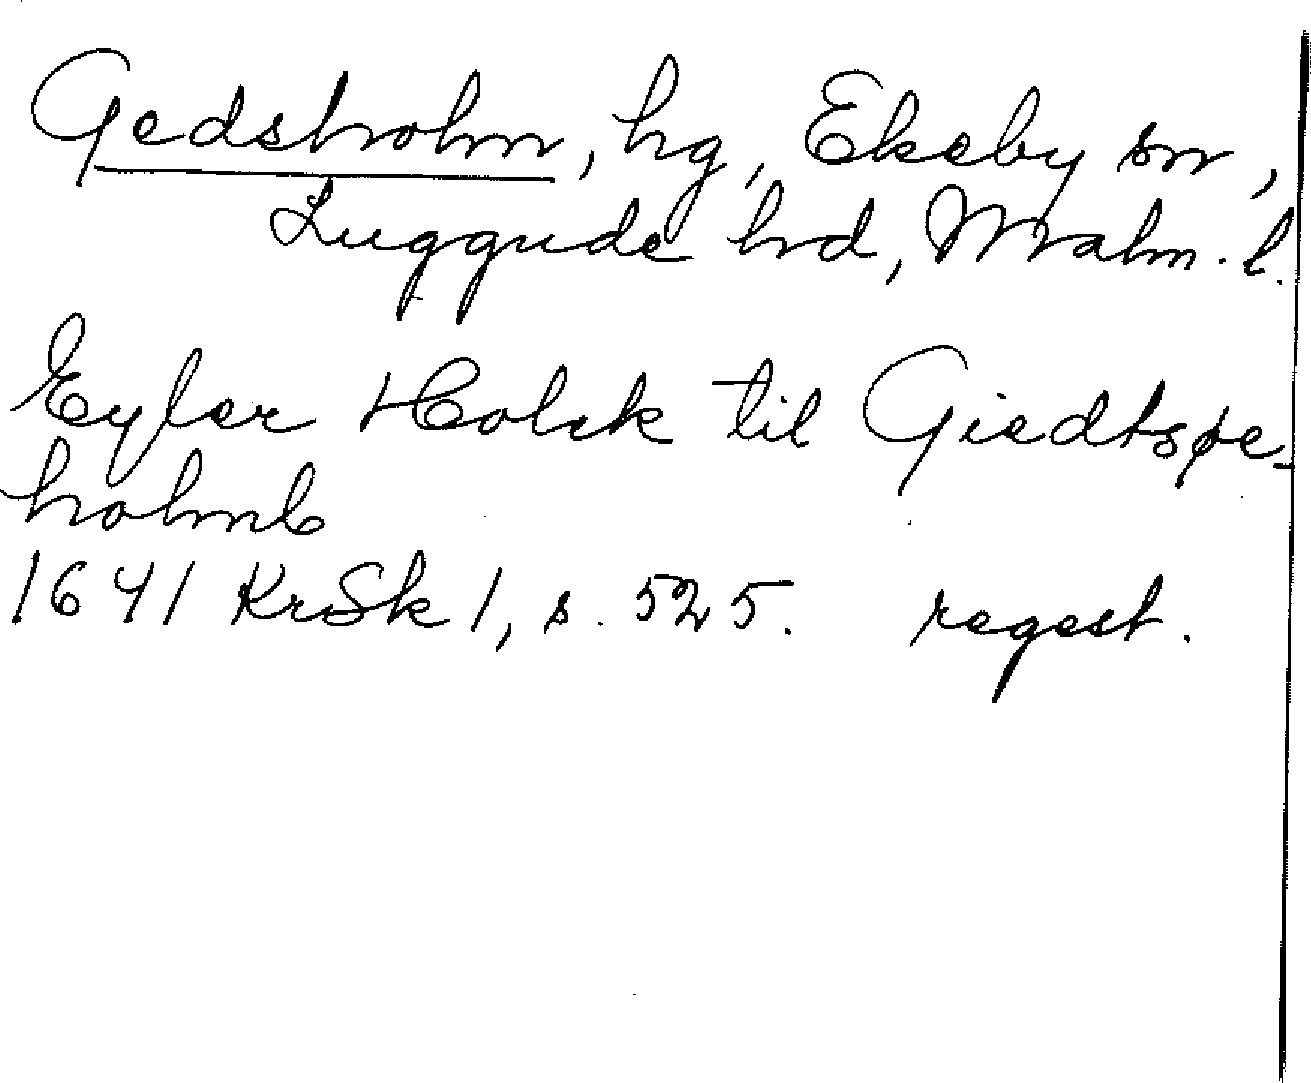 Gedsholm, hg, Ekeby sn,
Luggude hd, Malm. l.
Eyler Holck til Giedtspe-
holmb
1641 KrSk 1, s. 525. regest.